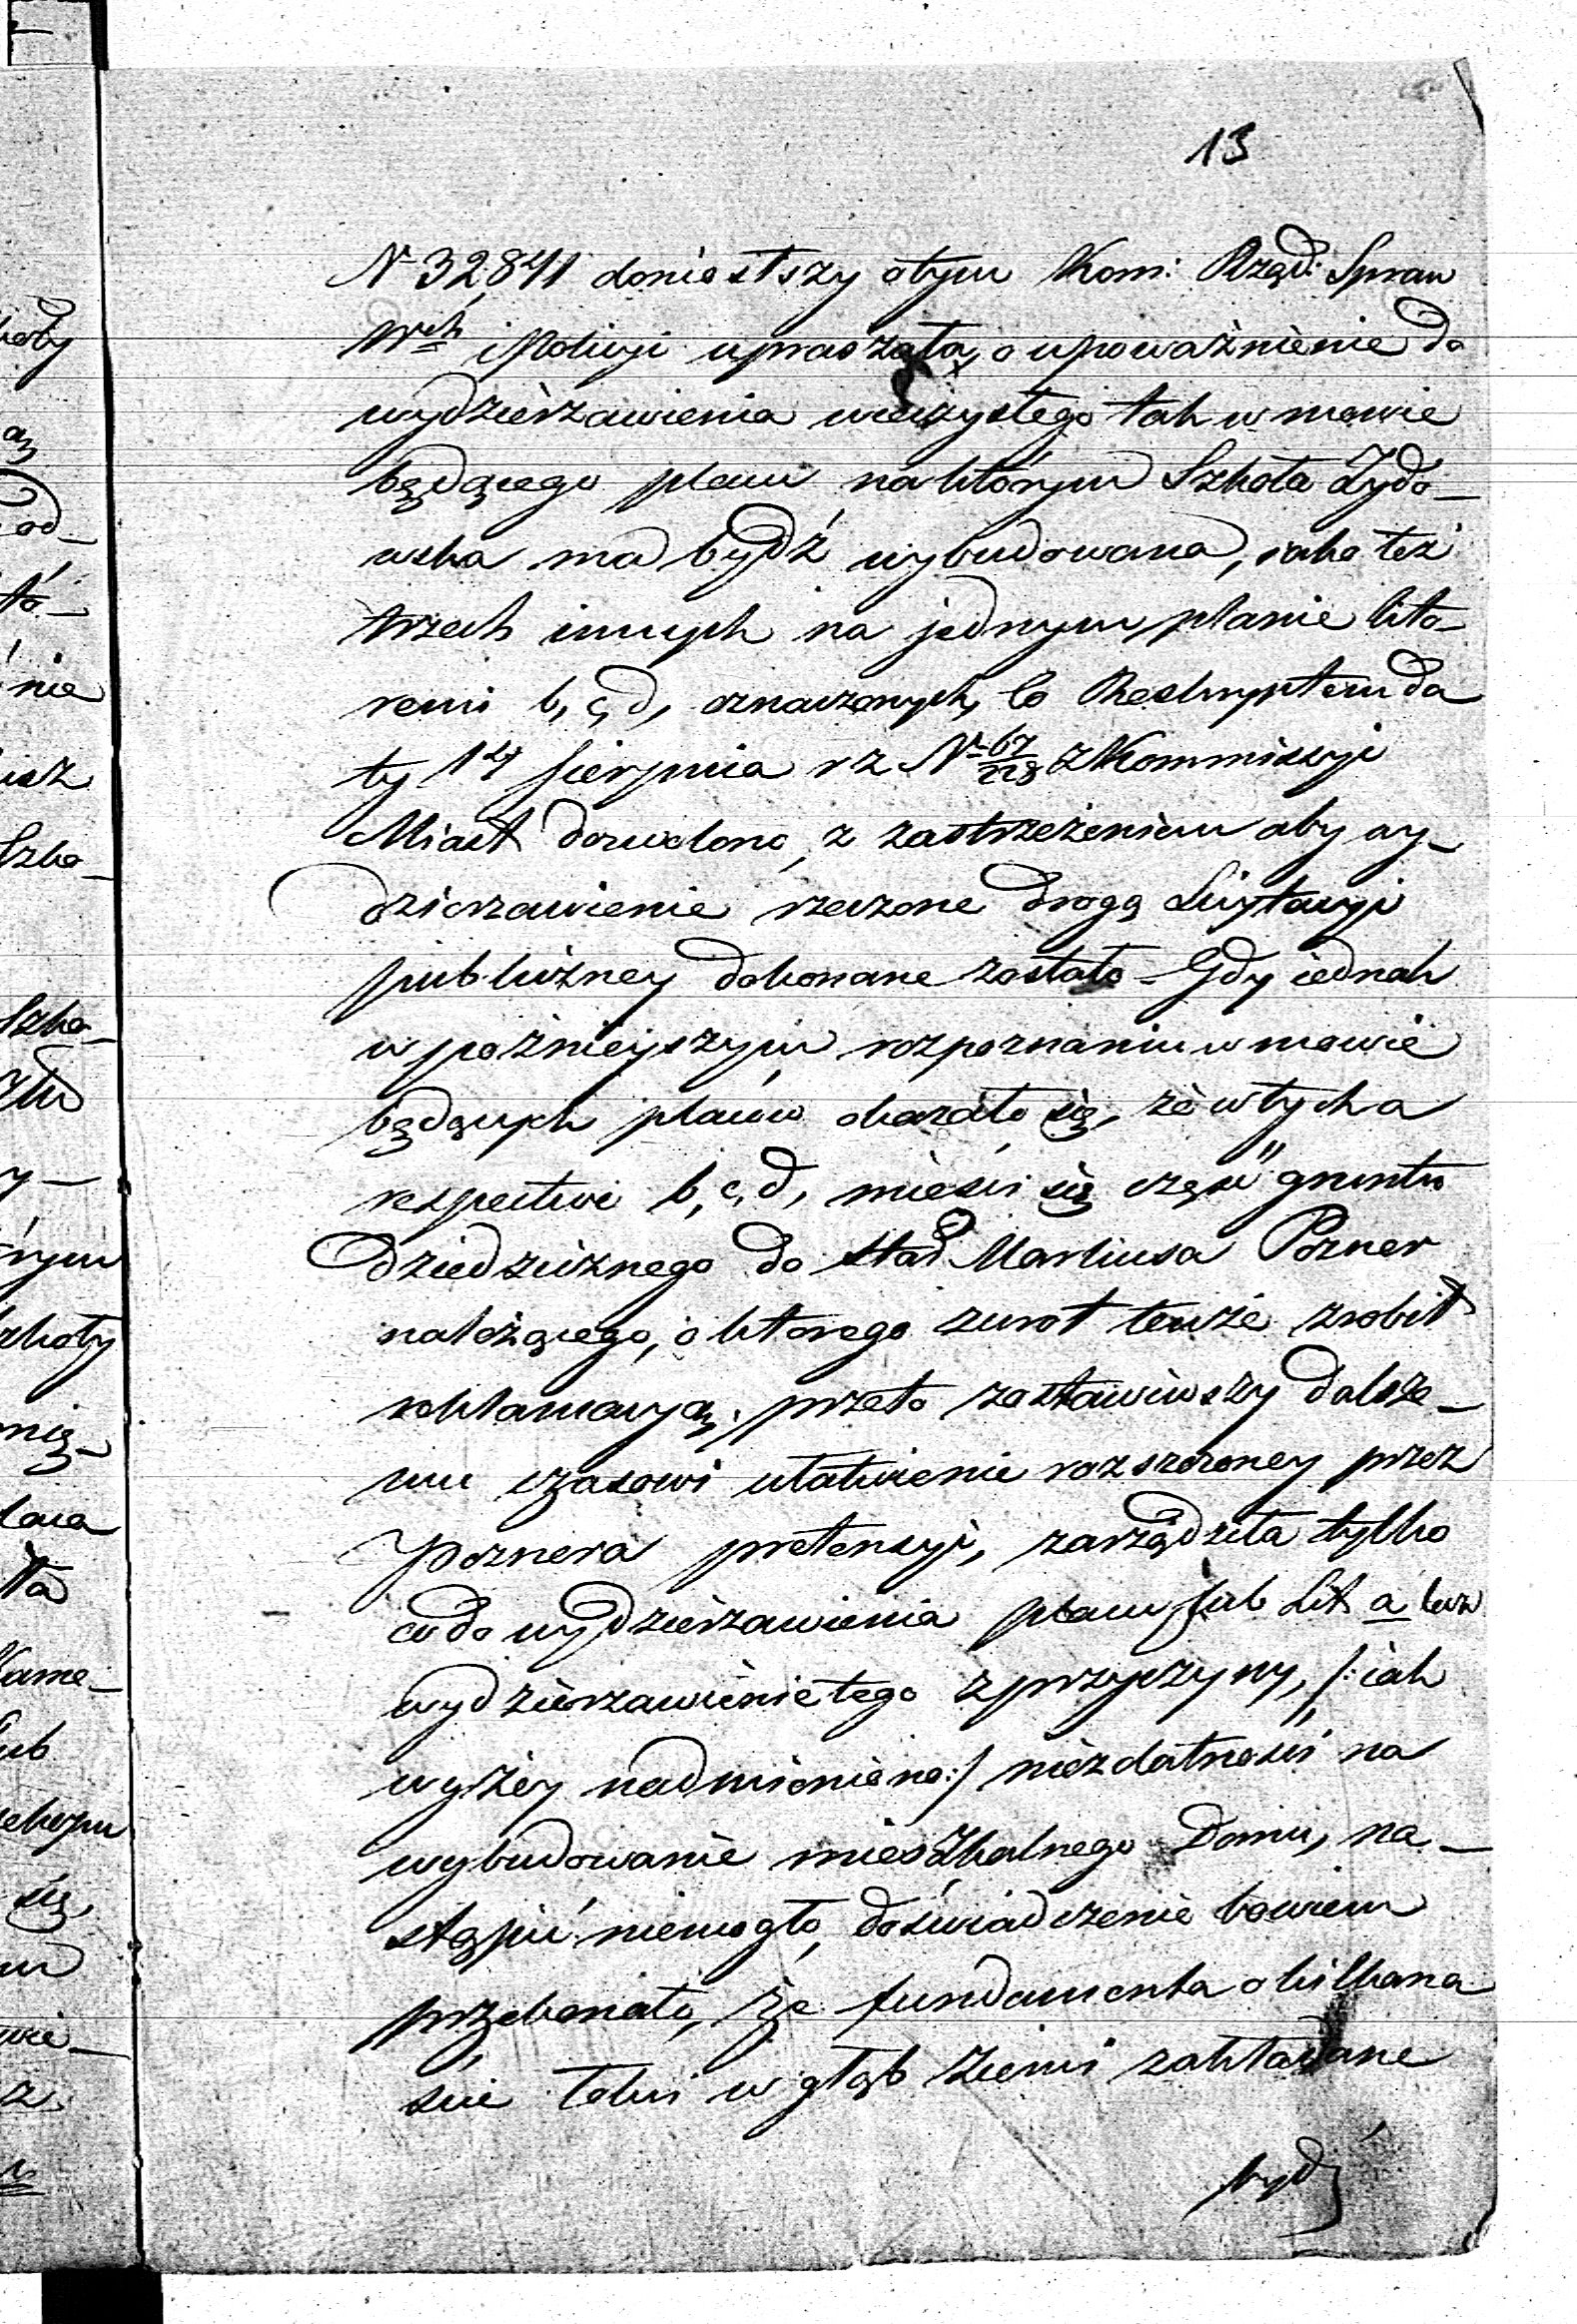 13
N 32,841 doniosłszy o tym Kom: Rząd: Spraw
Wch i Policyi upraszała, o upoważnienie do
wydzierzawienia wieczystego tak w mowie
będącego placu na którym Szkoła Żydo-
wska ma bydź wybudowana, iako też
trzech innych na jednym planie lito-
rami b, c, d, oznaczonych, Co Reskryptem da
ty 14 Sierpnia r z N 67/228 z Kommissyi
Miast dozwolono, z zastrzeżeniem aby wy-
dzierzawienie rzeczone drogą Licytacyi
publiczney dokonane zostało - Gdy iednak
w poźnieyszym rozpoznaniu w mowie
będących placów okazało się, że w tych a
respective b, c, d, mieści się część gruntu
dziedzicznego do Stad Markusa Pozner
należącego, o którego zwrot tenże zrobił
reklamacyą, przeto zostawiwszy dalsze-
mu czasowi ułatwienie rozszczoney przez
Poznera pretensyi, zarządziła tylko
co do wydzierzawienia placu sub Lit a lecz
wydzierzawienie tego z przyczyny, /: iak
wyżey nadmieniono :/ niezdatności na
wybudowanie mieszkalnego Domu, na-
stąpić niemogło, doświadczenie bowiem
przekonało, że fundamenta o kilkana
ście łokci w głąb ziemi zakładane
bydź
hoły
ą
od-
tó-
nie
isz
Szko-
Szko-
y-
rym
zkoły
nią-
ła
Kame-
ub
się,
wie-
z